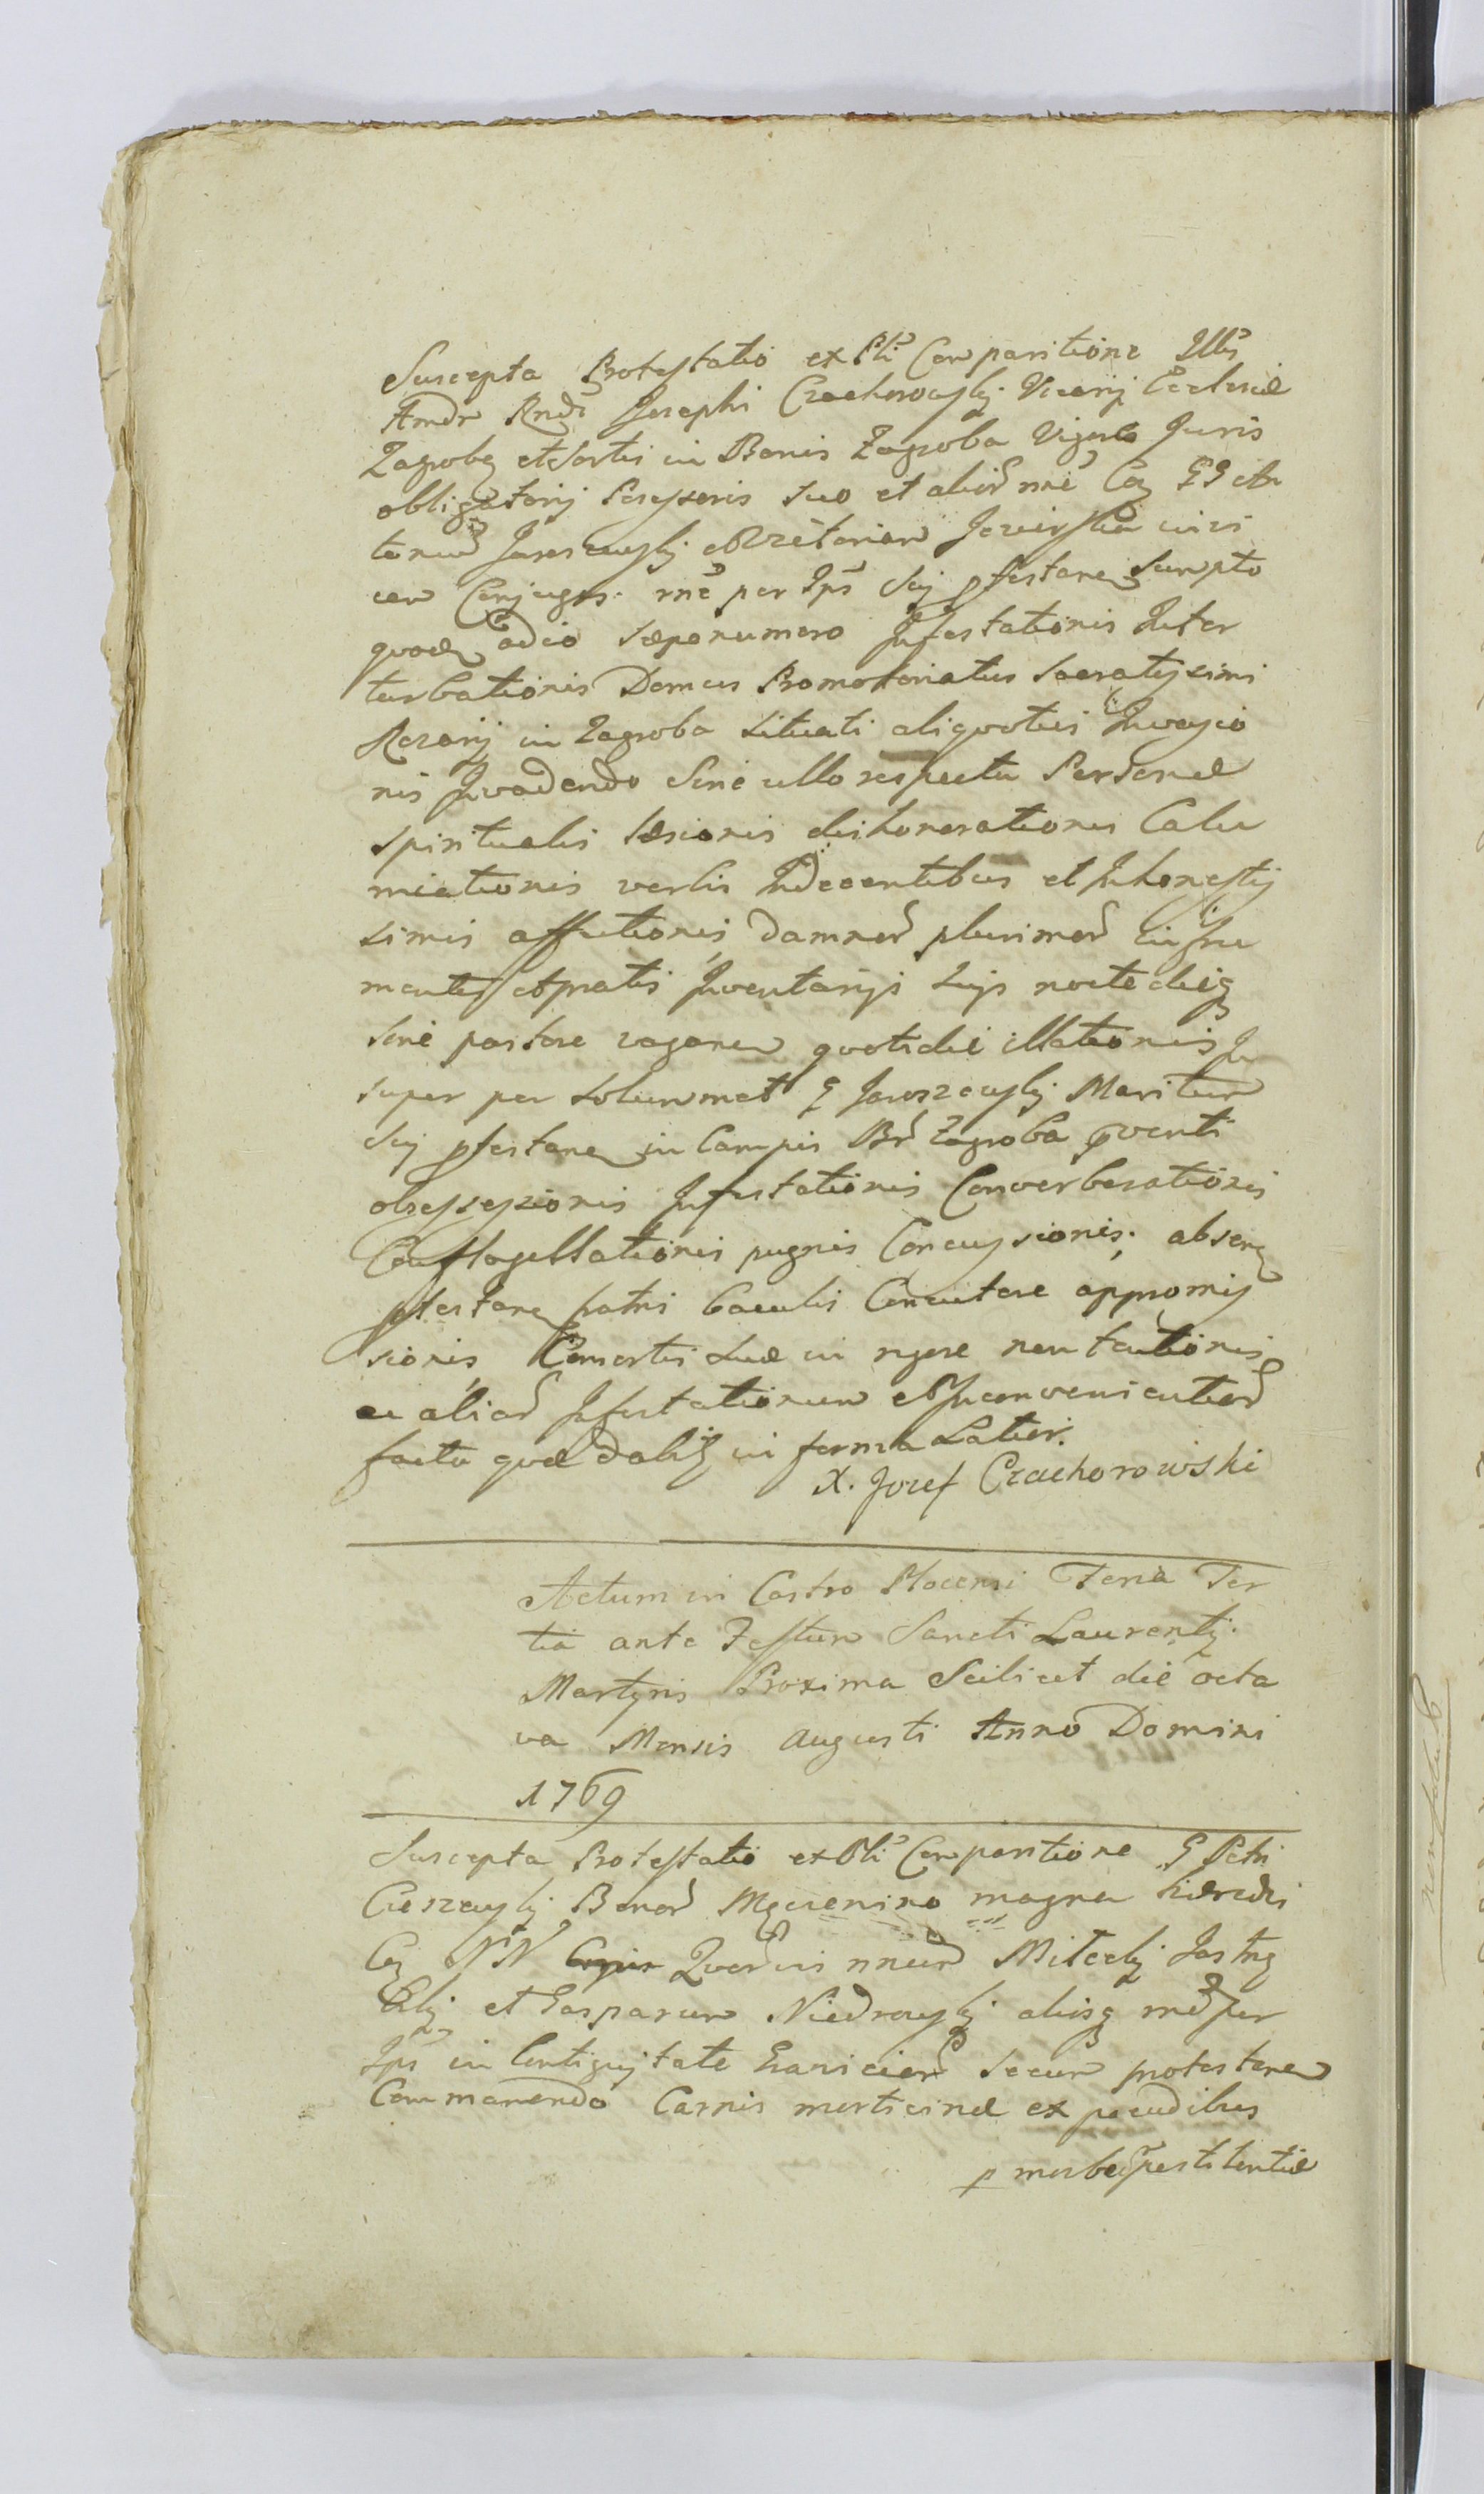 Suscepta Protestatio ex Pli Comparitione Illis
Amdr Rndi Josephi Czachorowskj Vicarij Ecclesiæ
Zagroba et Sortis in Bonis Zagroba Vigore Juris
obligatorij Possessoris suo et aliorũ nñe Cog GG An
tonium Jaroszewskj et
cem Conjuges. rne per Ips Scij ptestanem Sumpto
quoq odio sæpenumero Infestationis Inter
turbationis Domus Promotoriatus Sacratissimi
Rozarij in Zagroba Situati aliquotus Invasio
nis Invadendo Sine ullo respectu Personæ
Spiritualis læsionis dishonorationis Calu
mniationis verbis Indecentibus et Inhonestis
simis affectionis, damnorũ plurimorũ in fru
mentis et pratis Inventarijs Suis nocte dieq
Sine pastore vagarem quotidie illationis In
super per Solummet G Jaroszewskj Maritum
Scij ptestane in Campis Br Zagroba
obsessionis Infestationis Converberationis
Conflagellationis pugnis Concussionis; absenq
ptestane patri baculis Concutere appromis
sionis, Consortis suæ in
ac aliarũ Infestationum et Inconvenientiarũ
facta quæ dabitq in forma Latior.
X. Jozef Czachorowski
Actum in Castro Plocensi Feria Ter
tia ante Festum Sancti Laurentij
Martyris Proxima Scilicet die octa
va Mensis Augusti Anno Domini
1769
Suscepta Protestatio ex Pli Comparitione G Petri
Cieszewskj Bonorũ Mycienino magna hæredis
Cog NN Miteckj Jastrzę
bskj et Gasparum Niedrowskj aliosq rne per
Ips in Contiguitate Granicierũ Secum protestane
Commanendo Carnis morticinæ ex pecudibus
p morbũ pestilentiæ